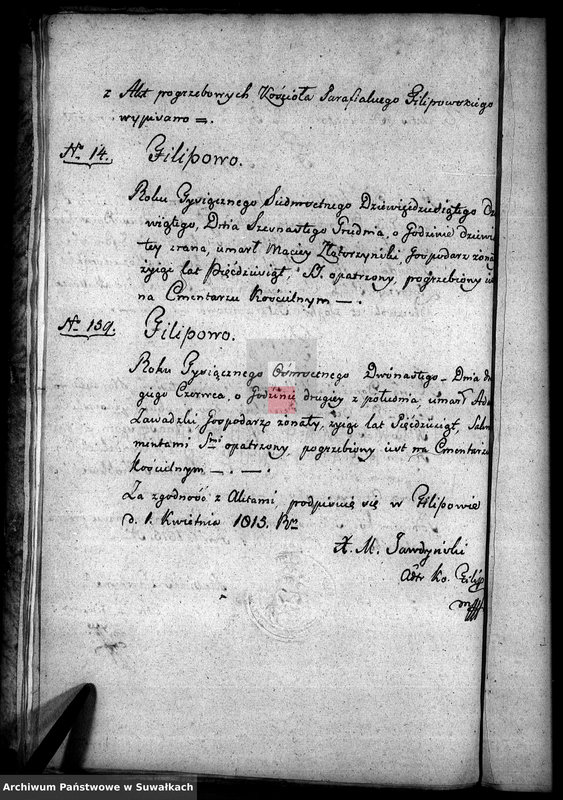 z Akt pogrzebowych Kościoła Parafialnego Filipowskiego
wypisano =.
Nº 14. Filipowo.
Roku Tysiącznego Siedmsetnego Dziewięćdziesiątego Dzie
wiątego, Dnia Szesnastego Grudnia, o Godzinie dziewią
tey zrana, umarł Maciey Gospodarz żonaty
żyjąc lat Pięćdziesiąt, opatrzony, pogrzebiony
na Cmentarzu Kościelnym —.
Nº 139. Filipowo.
Roku Tysiącznego Ośmsetnego Dwónastego — Dnia dru
giego Czerwca, o Godzinie drugiey z południa umarł Adam
Zawadzki Gospodarz żonaty, żyjąc lat Pięćdziesiąt, Sakra
mentami Smi opatrzony, pogrzebiony iest na Cmentarzu
Kościelnym —. —.
Za zgodność z Aktami, podpisuię się w Filipowie
d. 1. Kwietnia 1815. Rº
X. M. Jawdyński
Adtr Ko. Filip
Archiwum Państwowe w Suwałkach